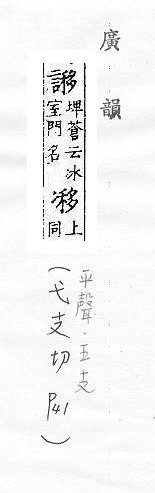 廣韻
謻埤蒼云冰室門名 上同
平聲.五支
(弋支切 P41)